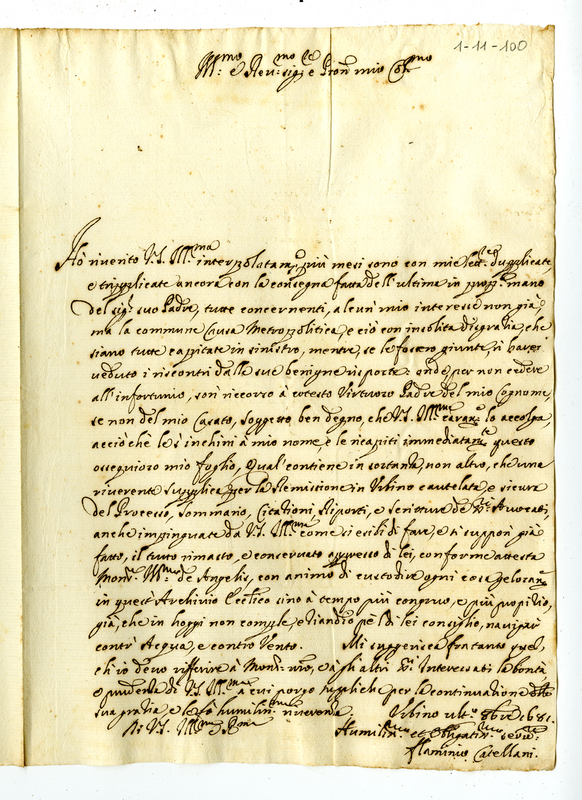 1-11-100
Ill.mo e Rev.mo sig.re e Pron mio Col.mo
Hò rivento V.S. Ill.ma interpolatam.te più mesi sono con mie lett.re dupplicate,
e tripplicate ancora con la consegna fatta dell'ultima in propp.a mano
del sig.r suo Padre, tutte concernenti, alcun mio interesse non già,
ma la commune Causa Metropolitica, e ciò con insolita disgrazia, che
siano tutte capitate in sinistro, mentre, se le fossero giunte, n'havrei
veduto i riscontri dalle sue benigne risposte: onde, per non cedere
all'infortunio, son ricorso à cotesto Virtuoso Padre del mio Cognome,
se non del mio Casato, soggetto ben degno, che V.S. Ill.ma lo accolga
acciò che le s'inchini à mio nome, e le ricapiti immediatam.te questo
ossequioso mio foglio, Qual contiene in sostanza, non altro, che una
riverente supplica per la Remissione in Urbino cautelata, e sicura
del Processo, sommario, Citationi, Riporti, e scritture de SS.ri Avvocati,
anche impinguate da V.S. Ill.ma come si esibì di fare, e si suppon già
fatto, il tutto rimasto, e conservato appresso di lei, conforme attesta
Mons.r Ill.mo de Angelis, con animo di custodire ogni cosa gelosam.te
in quest'Archivio Eccl.ico sino à tempo più congruo, e più propitio,
già, che in hoggi non comple, etiandio p il di lei consiglio, navigar
contr'Acqua, e contro Vento. Mi suggerisca fratanto quel,
ch'io devo rifferire à Mons.r mio, e à gli altri SS.ri Interessati la bontà
e prudenza di V.S. Ill.ma à cui porgo suppliche per la continuatione della
sua gratia, e le fò humiliss.ma riverenza. Urbino ult.o 8bre 1681.
Di V.S. Ill.ma e R.ma
Humiliss.mo et Obligatiss.mo serv.re
Flaminio Catellani.